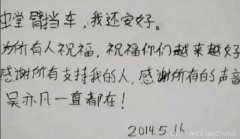 臂挡车，我还安好。
为所有人祝福，祝福你们越来越好
感谢所有支持我的人，感谢所有的声音
吴亦凡一直都在！
2014.5.16